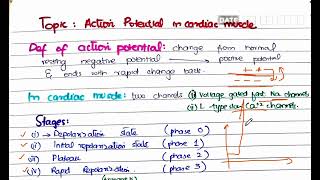 Topic: Action Potential in cardiac muscle
DATE
Def of action potential: change from normal
resting negative potential → positive potential
& ends with rapid change back.
In cardiac muscle: two channels (i) Voltage gated fast Na channels
(ii) L-type Ca+2 channels.
Stages:
(i) → Depolarization state (phase 0)
(ii) Initial repolarization state (phase 1)
(iii) Plateau (phase 2)
(iv) Rapid Repolarization (phase 3)